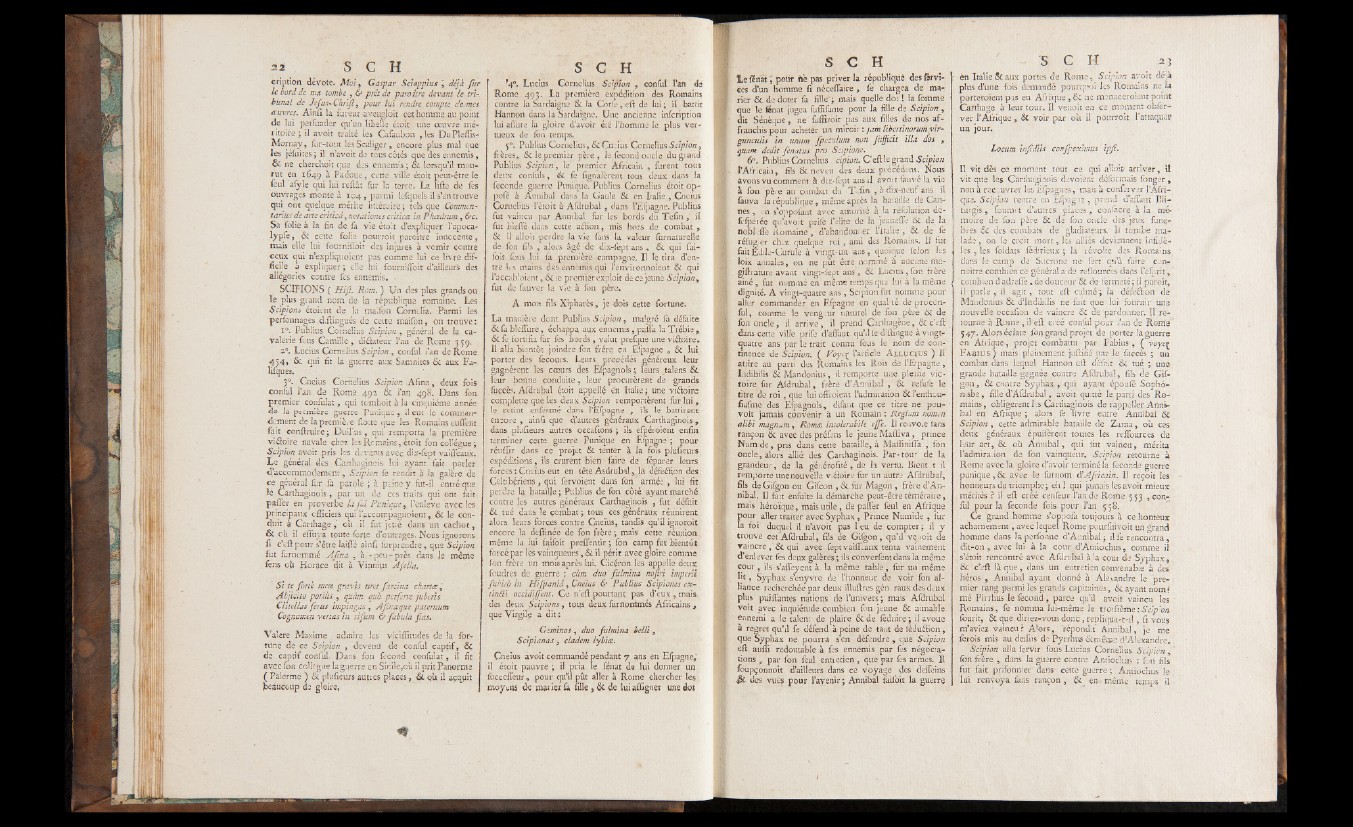 22 S C H
cription dévote. Moi, Gaſpar Scioppius, déjà ſur
le bord de ma tombe, & prêt de paroître devant le tri-
bunal de Jeſus-Chriſt, pour lui rendre compte de mes
œuvres. Ainſi la fureur aveugloit cet homme au point
de lui perſuader qu'un libelle étoit une œuvre mé-
ritoire; il avoit traité les Caſaubon, les Du Pleſſis-
Mornay, ſur-tout les Scaliger, encore plus mal que
les jéſuites; il n'avoit de tous côtés que des ennemis,
& ne cherchoit que des ennemis; & lorſqu'il mou-
rut en 1649 à Padoue, cette ville étoit peut-être le
ſeul aſyle qui lui reſtât ſur la terre. La liſte de ſes
ouvrages monte à 104, parmi leſquels il s'en trouve
qui ont quelque mérite littéraire; tels que Commen-
tarius de arte criticâ, notationes criticæ in Phædrum, &c.
Sa folie à la fin de ſa vie étoit d'expliquer l'apoca-
lypſe, & cette folie pourroit paroître innocente,
mais elle lui fourniſſoit des injures à vomir contre
ceux qui n'expliquoient pas comme lui ce livre dif-
ficile à expliquer; elle lui fourniſſoit d'ailleurs des
allégories contre ſes ennemis.
SCIPIONS ( Hiſt. Rom. ) Un des plus grands ou
le plus grand nom de la république romaine. Les
Scipions étoient de la maiſon Cornélia. Parmi les
perſonnages diſtingués de cette maiſon, on trouve:
1°. Publius Cornelius Scipion, général de la ca-
valerie ſous Camille, dictateur l'an de Rome 359.
2°. Lucius Cornelius Scipion, conſul l'an de Rome
454, & qui fit la guerre aux Samnites & aux Fa-
liſques.
3°. Cneius Cornelius Scipion Aſina, deux fois
conſul l'an de Rome 492 & l'an 498. Dans ſon
premier conſulat, qui tomboit à la cinquième année
de la première guerre Punique, il eut le comman-
dement de la première flotte que les Romains euſſent
fait conſtruire; Duilius, qui remporta la première
victoire navale chez les Romains, étoit ſon collègue;
Scipion avoit pris les devants avec dix-ſept vaiſſeaux.
Le général des Carthaginois lui ayant fait parler
d'accommodement, Scipion ſe rendit à la galère de
ce général ſur ſa parole; à peine y fut-il entré que
le Carthaginois, par un de ces traits qui ont fait
paſſer en proverbe la foi Punique, l'enleve avec les
principaux officiers qui l'accompagnoient, & le con-
duit à Carthage, où il fut jetté dans un cachot,
& où il eſſuya toute ſorte d'outrages. Nous ignorons
ſi c'eſt pour s'être laiſſé ainſi ſurprendre, que Scipion
fut ſurnommé Aſina, à-peu-près dans le même
ſens où Horace dit à Vinnius Aſella.
Si te fortè meæ gravis uret ſarcina chartæ,
Abjicito potiùs, quàm quò perferre juberis
Clitellas ferus impingas, Aſinæque paternum
Cognomen vertas in riſum & fabula fias.
Valere Maxime admire les viciſſitudes de la for-
tune de ce Scipion, devenu de conſul captif, &
de captif conſul. Dans ſon ſecond conſulat, il fit
avec ſon collègue la guerre en Sicile, où il prit Panorme
( Palerme ) & pluſieurs autres places, & où il acquit
beaucoup de gloire.
S C H
4°. Lucius Cornelius Scipion, conſul l'an de
Rome 493. La première expédition des Romains
contre la Sardaigne & la Corſe, eſt de lui; il battit
Hannon dans la Sardaigne. Une ancienne inſcription
lui aſſure la gloire d'avoir été l'homme le plus ver-
tueux de ſon temps.
5°. Publius Cornelius, & Cneius Cornelius Scipion,
frères, & le premier père, le ſecond oncle du grand
Publius Scipion, le premier Africain, furent tous
deux conſuls, & ſe ſignalèrent tous deux dans la
ſeconde guerre Punique. Publius Cornelius étoit op-
poſé à Annibal dans la Gaule & en Italie, Cneius
Cornelius l'étoit à Aſdrubal, dans l'Eſpagne. Publius
fut vaincu par Annibal ſur les bords du Teſin, il
fut bleſſé dans cette action, mis hors de combat,
& il alloit perdre la vie ſans la valeur ſurnaturelle
de ſon fils, alors âgé de dix-ſept ans, & qui fai-
ſoit ſous lui ſa première campagne. Il le tira d'en-
tre les mains des ennemis qui l'environnoient & qui
l'accabloient, & ce premier exploit de ce jeune Scipion,
fut de ſauver la vie à ſon père.
A mon fils Xipharès, je dois cette fortune.
La manière dont Publius Scipion, malgré ſa défaite
& ſa bleſſure, échappa aux ennemis, paſſa la Trébie,
& ſe fortifia ſur ſes bords, valut preſque une victoire.
Il alla bientôt joindre ſon frère en Eſpagne, & lui
porter des ſecours. Leurs procédés généreux leur
gagnèrent les cœurs des Eſpagnols; leurs talens &
leur bonne conduite, leur procurèrent de grands
ſuccès. Aſdrubal étoit appellé en Italie; une victoire
complette que les deux Scipion remportèrent ſur lui,
le retint enfermé dans l'Eſpagne, ils le battirent
encore, ainſi que d'autres généraux Carthaginois,
dans pluſieurs autres occaſions; ils eſpéroient enfin
terminer cette guerre Punique en Eſpagne; pour
réuſſir dans ce projet & tenter à la fois pluſieurs
expéditions, ils crurent bien faire de ſéparer leurs
forces: Cneius eut en tête Aſdrubal, la défection des
Celtibériens, qui ſervoient dans ſon armée, lui fit
perdre la bataille; Publius de ſon côté ayant marché
contre les autres généraux Carthaginois, fut défait
& tué dans le combat; tous ces généraux réunirent
alors leurs forces contre Cneius, tandis qu'il ignoroit
encore la deſtinée de ſon frère; mais cette réunion
même la lui faiſoit preſſentir; ſon camp fut bientôt
forcé par les vainqueurs, & il périt avec gloire comme
ſon frère un mois après lui. Cicéron les appelle deux
foudres de guerre: cùm duo fulmina noſtri imperii
ſubitò in Hiſpaniâ, Cneius & Publius Scipiones ex-
tincti occidiſſent. Ce n'eſt pourtant pas d'eux, mais
des deux Scipions, tous deux ſurnommés Africains,
que Virgile a dit:
Geminos, duo fulmina belli,
Scipiadas, cladem lybiæ.
Cneius avoit commandé pendant 7 ans en Eſpagne;
il étoit pauvre; il pria le ſénat de lui donner un
ſucceſſeur, pour qu'il pût aller à Rome chercher les
moyens de marier ſa fille, & de lui aſſigner une dot
S C H
Le ſénat, pour ne pas priver la république des ſervi-
ces d'un homme ſi néceſſaire, ſe chargea de ma-
rier & de doter ſa fille; mais quelle dot! la ſomme
que le ſénat jugea ſuffiſante pour la fille de Scipion,
dit Sénèque, ne ſuffiroit pas aux filles de nos af-
franchis pour acheter un miroir: jam libertinorum vir-
gunculis in unum ſpeculum non ſufficit illa dos,
quam dedit ſenatus pro Scipione.
6°. Publius Cornelius Scipion. C'eſt le grand Scipion
l'Africain, fils & neveu des deux précédens. Nous
avons vu comment à dix-ſept ans il avoit ſauvé la vie
à ſon père au combat du Teſin, à dix-neuf ans il
ſauva la république, même après la bataille de Can-
nes, en s'oppoſant avec autorité à la réſolution dé-
ſeſpérée qu'avoit priſe l'élite de la jeuneſſe & de la
nobleſſe Romaine, d'abandonner l'Italie, & de ſe
réfugier chez quelque roi, ami des Romains. Il fut
fait Edile-Curule à vingt-un ans, quoique ſelon les
loix annales, on ne pût être nommé à aucune ma-
giſtrature avant vingt-ſept ans, & Lucius, ſon frère
aîné, fut nommé en même temps que lui à la même
dignité. A vingt-quatre ans, Scipion fut nommé pour
aller commander en Eſpagne en qualité de procon-
ſul, comme le vengeur naturel de ſon père & de
ſon oncle, il arrive, il prend Carthagène, & c'eſt
dans cette ville priſe d'aſſaut qu'il ſe diſtingue à vingt-
quatre ans par le trait connu ſous le nom de con-
tinence de Scipion. ( Voyez l'article ALLUCIUS ) Il
attire au parti des Romains les Rois de l'Eſpagne,
Indibilis & Mandonius, il remporte une pleine vic-
toire ſur Aſdrubal, frère d'Annibal, & refuſe le
titre de roi, que lui offroient l'admiration & l'enthou-
ſiaſme des Eſpagnols, diſant que ce titre ne pou-
voit jamais convenir à un Romain: Regium nomen
alibi magnum, Romæ intolerabile eſſe. Il renvoie ſans
rançon & avec des préſens le jeune Maſſiva, prince
Numide, pris dans cette bataille, à Maſſiniſſa, ſon
oncle, alors allié des Carthaginois. Par-tout de la
grandeur, de la généroſité, de la vertu. Bientôt il
remporte une nouvelle victoire ſur un autre Aſdrubal,
fils de Giſgon ou Giſcon, & ſur Magon, frère d'An-
nibal. Il fait enſuite la démarche peut-être téméraire,
mais héroïque, mais utile, de paſſer ſeul en Afrique
pour aller traiter avec Syphax, Prince Numide, ſur
la foi duquel il n'avoit pas lieu de compter; il y
trouve cet Aſdrubal, fils de Giſgon, qu'il venoit de
vaincre, & qui avec ſept vaiſſeaux tenta vainement
d'enlever ſes deux galères; ils converſent dans la même
cour, ils s'aſſeyent à la même table, ſur un même
lit, Syphax s'enyvre de l'honneur de voir ſon al-
liance recherchée par deux illuſtres généraux des deux
plus puiſſantes nations de l'univers; mais Aſdrubal
voit avec inquiétude combien ſon jeune & aimable
ennemi a le talent de plaire & de ſéduire; il avoue
à regret qu'il ſe défend à peine de tant de ſéduction,
que Syphax ne pourra s'en défendre, que Scipion
eſt auſſi redoutable à ſes ennemis par ſes négocia-
tions, par ſon ſeul entretien, que par ſes armes. Il
ſoupçonnoit d'ailleurs dans ce voyage des deſſeins
& des vues pour l'avenir; Annibal faiſoit la guerre
S C H 23
en Italie & aux portes de Rome, Scipion avoit déjà
plus d'une fois demandé pourquoi les Romains ne la
porteroient pas en Afrique, & ne menaceroient point
Carthage à leur tour. Il venoit en ce moment obſer-
ver l'Afrique, & voir par où il pourroit l'attaquer
un jour.
Locum inſidiis conſpeximus ipſi.
Il vit dès ce moment tout ce qui alloit arriver, il
vit que les Carthaginois devoient déſormais ſonger,
non à recouvrer les Eſpagnes, mais à conſerver l'Afri-
que. Scipion rentre en Eſpagne, prend d'aſſaut Illi-
turgis, ſoumet d'autres places, conſacre à la mé-
moire de ſon père & de ſon oncle des jeux funè-
bres & des combats de gladiateurs. Il tombe ma-
lade, on le croit mort, les alliés deviennent infidè-
les, les ſoldats ſéditieux; la révolte des Romains
dans le camp de Sucrone ne ſert qu'à faire con-
noître combien ce général a de reſſources dans l'eſprit,
combien d'adreſſe, de douceur & de fermeté; il paroît,
il parle, il agit, tout eſt calmé; la défection de
Mandonius & d'Indibilis ne fait que lui fournir une
nouvelle occaſion de vaincre & de pardonner. Il re-
tourne à Rome, il eſt créé conſul pour l'an de Rome
547. Alors éclate ſon grand projet de porter la guerre
en Afrique, projet combattu par Fabius, ( voyez
FABIUS ) mais pleinement juſtifié par le ſuccès; un
combat dans lequel Hannon eſt défait & tué; une
grande bataille gagnée contre Aſdrubal, fils de Giſ-
gon, & contre Syphax, qui ayant épouſé Sopho-
nisbe, fille d'Aſdrubal, avoit quitté le parti des Ro-
mains, obligèrent les Carthaginois de rappeller Anni-
bal en Afrique; alors ſe livre entre Annibal &
Scipion, cette admirable bataille de Zama, où ces
deux généraux épuiſèrent toutes les reſſources de
leur art, & où Annibal, qui fut vaincu, mérita
l'admiration de ſon vainqueur. Scipion retourne à
Rome avec la gloire d'avoir terminé la ſeconde guerre
punique, & avec le ſurnom d'Africain. Il reçoit les
honneurs du triomphe; eh! qui jamais les avoit mieux
mérités? il eſt créé cenſeur l'an de Rome 553, con-
ſul pour la ſeconde fois pour l'an 558.
Ce grand homme s'oppoſa toujours à ce honteux
acharnement, avec lequel Rome pourſuivoit un grand
homme dans la perſonne d'Annibal; il ſe rencontra,
dit-on, avec lui à la cour d'Antiochus, comme il
s'étoit rencontré avec Aſdrubal à la cour de Syphax,
& c'eſt là que, dans un entretien convenable à des
héros, Annibal ayant donné à Alexandre le pre-
mier rang parmi les grands capitaines, & ayant nom-
mé Pirrhus le ſecond, parce qu'il avoit vaincu les
Romains, ſe nomma lui-même le troiſième: Scipion
ſourit, & que diriez-vous donc, repliqua-t-il, ſi vous
m'aviez vaincu? Alors, répondit Annibal, je me
ſerois mis au deſſus de Pyrrhus & même d'Alexandre.
Scipion alla ſervir ſous Lucius Cornelius Scipion,
ſon frère, dans la guerre contre Antiochus: ſon fils
fut fait priſonnier dans cette guerre; Antiochus le
lui renvoya ſans rançon, & en même temps il